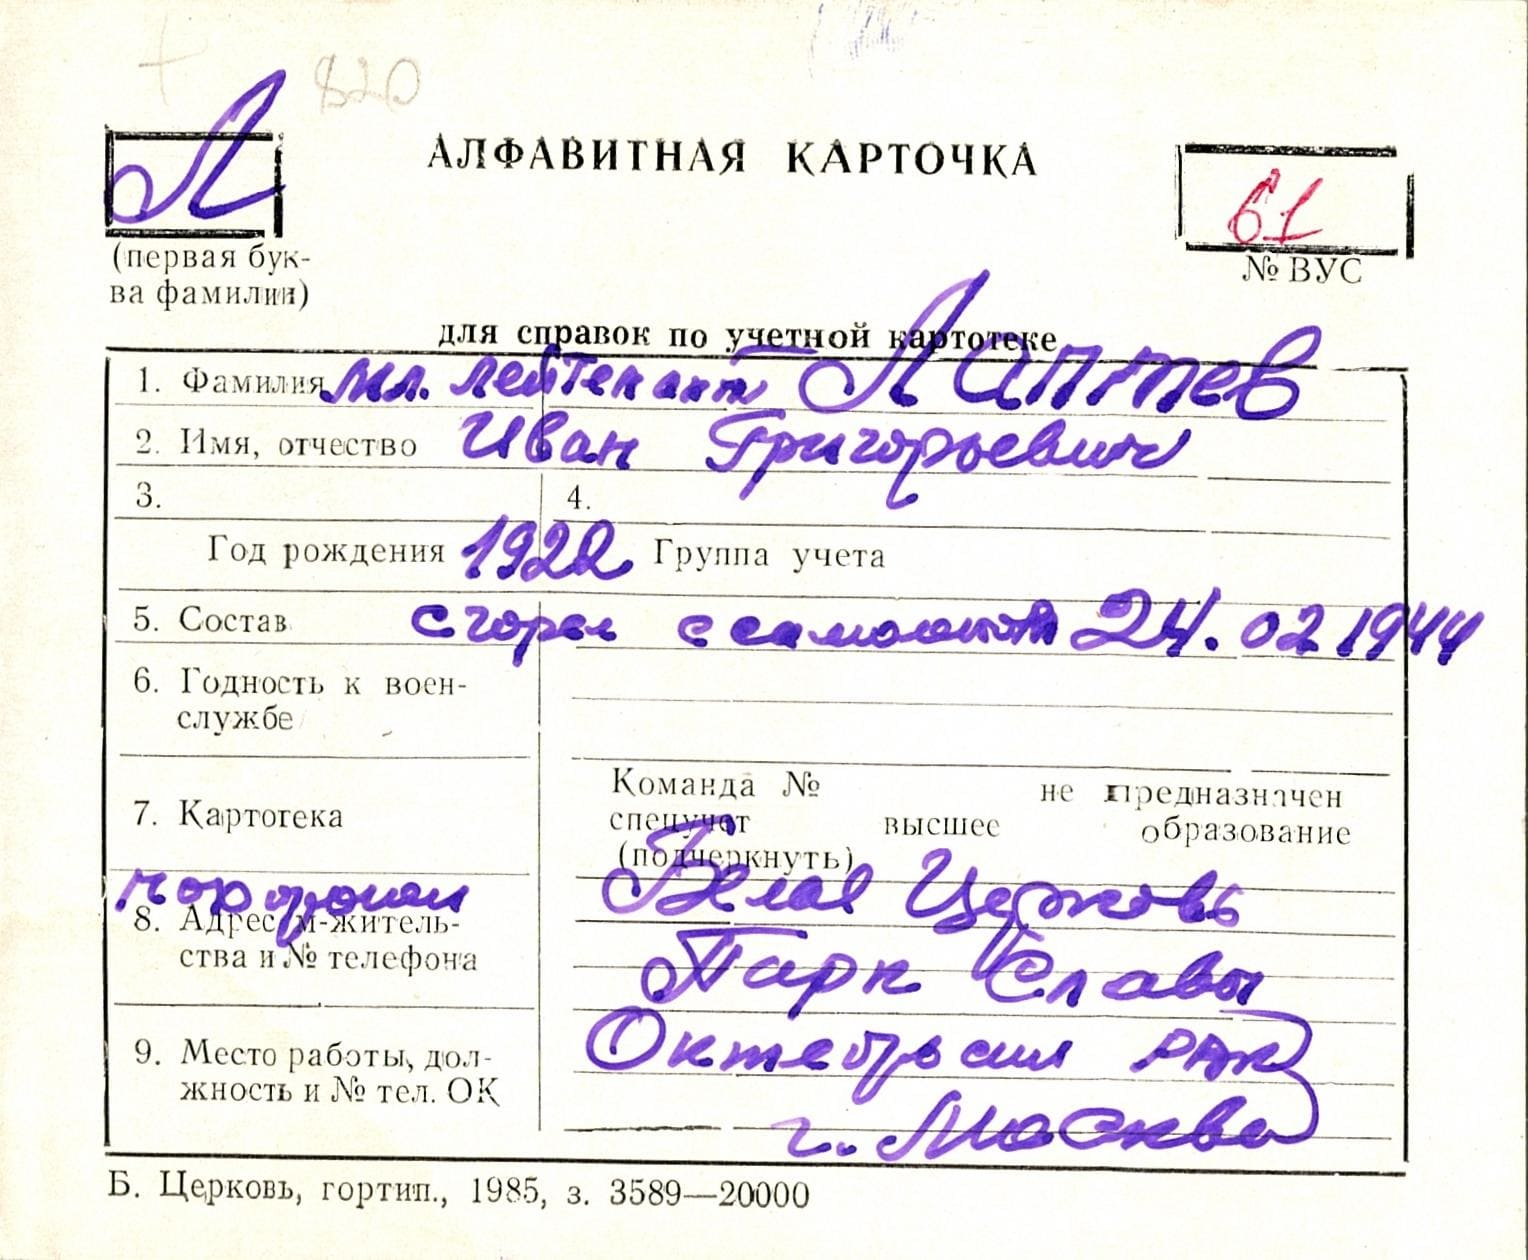 820
Л
АЛФАВИТНАЯ КАРТОЧКА
61
(первая бук-
ва фамилии)
№ ВУС
для справок по учетной картотеке
1. Фамилия мл. лейтенант Лаптев
2. Имя, отчество Иван Григорьевич
3. 4.
Год рождения 1922 Группа учета
5. Состав сгорел с самолетом 24.02 1944
6. Годность к воен-
службе
7. Картотека
Команда № не предназначен
спецучет высшее образование
(подчеркнуть)
похоронен Белая Церковь
8. Адрес м-житель-
ства и № телефона
Парк Славы
9. Место работы, дол-
жность и № тел. ОК
Октябрьский РВК
г. Москва
Б. Церковь, гортип., 1985, з. 3589—20000